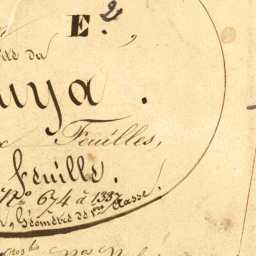 E. 2
du
uya.
Feuilles,
feuille.
N° 674 à 1337
Géomètre de 1re Classe.